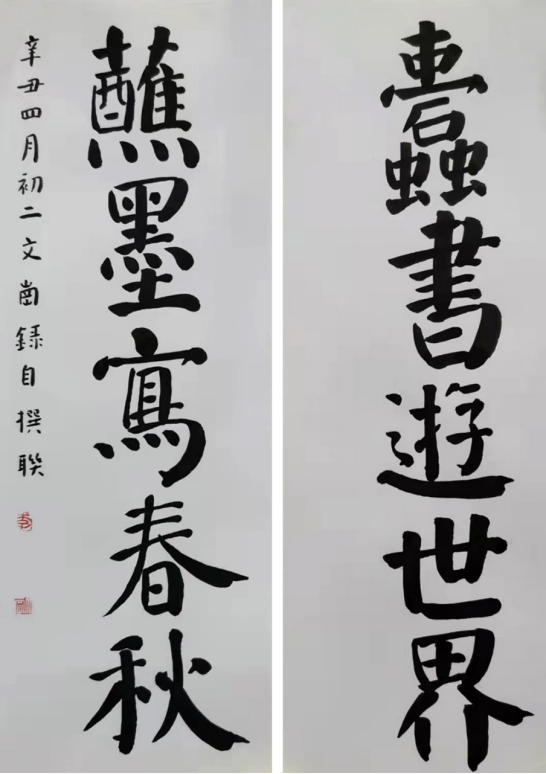 蠹書遊世界
蘸墨寫春秋
辛丑四月初二文崗録自撰聯